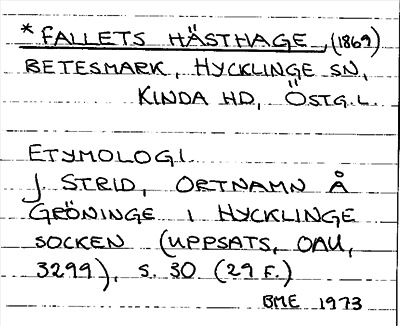 * FALLETS HÄSTHAGE, (1869)
BETESMARK, HYCKLINGE SN,
KINDA HD, ÖSTG.L.
ETYMOLOGI
J. STRID, ORTNAMN Å
GRÖNINGE I HYCKLINGE
SOCKEN (UPPSATS, OAU,
3299), S. 30 (29 F.)
BME 1973